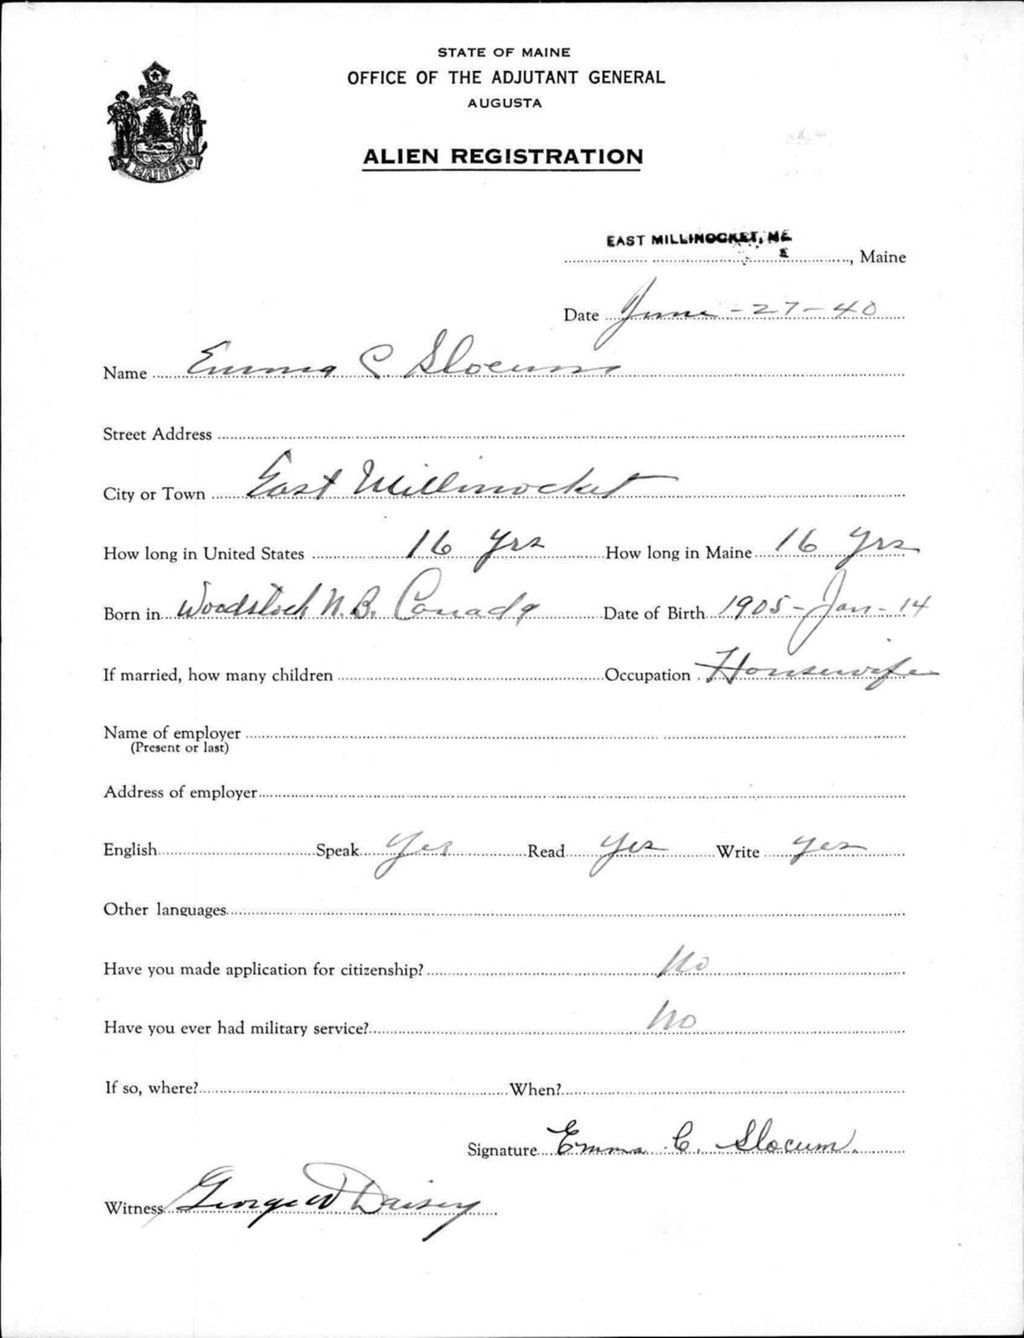 STATE OF MAINE
OFFICE OF THE ADJUTANT GENERAL
AUGUSTA
ALIEN REGISTRATION
MAINE
EAST MILLINOCKET, ME
E
, Maine
Date June - 27 - 40
Name Emma C Slocum
Street Address
City or Town East Millinocket
How long in United States 16 yrs How long in Maine 16 yrs
Born in Woodstock N.B. Canada Date of Birth 1905 - Jan - 14
If married, how many children Occupation Housewife
Name of employer
(Present or last)
Address of employer
English Speak Yes Read Yes Write Yes
Other languages
Have you made application for citizenship? No
Have you ever had military service? No
If so, where? When?
Signature Emma C. Slocum.
Witness George W Daisey